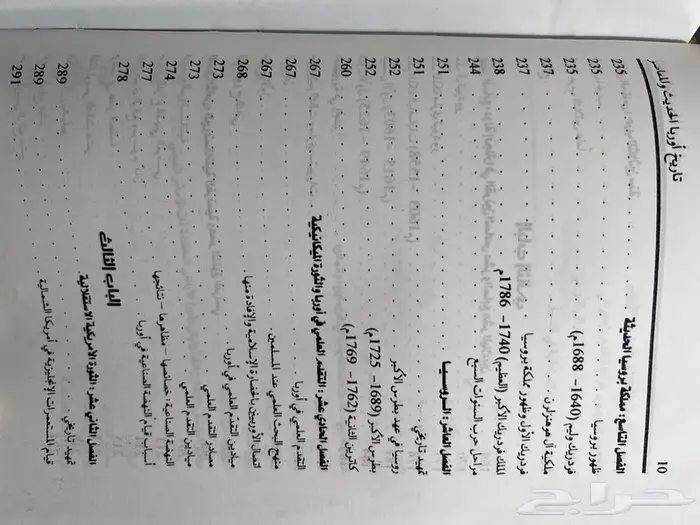 10 تاريخ أوربا الحديث والمعاصر
الفصل التاسع: مملكة بروسيا الحديثة 235
ظهور بروسيا 235
فردريك وليم (1640- 1688م) 235
ملكية آل هوهنزلرن 237
فردريك الأول وظهور مملكة بروسيا 237
الملك فردريك الأكبر (العظيم) 1740- 1786م 238
مراحل حرب السنوات السبع 244
الفصل العاشر: الروسيا 251
تمهيد تاريخي 251
روسيا في عهد بطرس الأكبر 252
بطرس الأكبر (1689- 1725م) 252
كاترين الثانية (1762- 1769م) 260
الفصل الحادي عشر: التقدم العلمي في أوربا والثورة الميكانيكية 267
التقدم العلمي في أوربا 267
منهج البحث العلمي عند المسلمين 267
اتصال الأوربيين بالحضارة الإسلامية والإفادة منها 268
ميادين التقدم العلمي في أوربا 273
مصادر التقدم العلمي 273
ميادين التقدم العلمي 274
النهضة الصناعية: خصائصها - مظاهرها - نتائجها 277
أسباب قيام النهضة الصناعية في أوربا 278
الباب الثالث
الفصل الثاني عشر: الثورة الأمريكية الاستقلالية 289
تمهيد تاريخي 289
قيام المستعمرات الإنجليزية في أمريكا الشمالية 291
حراج